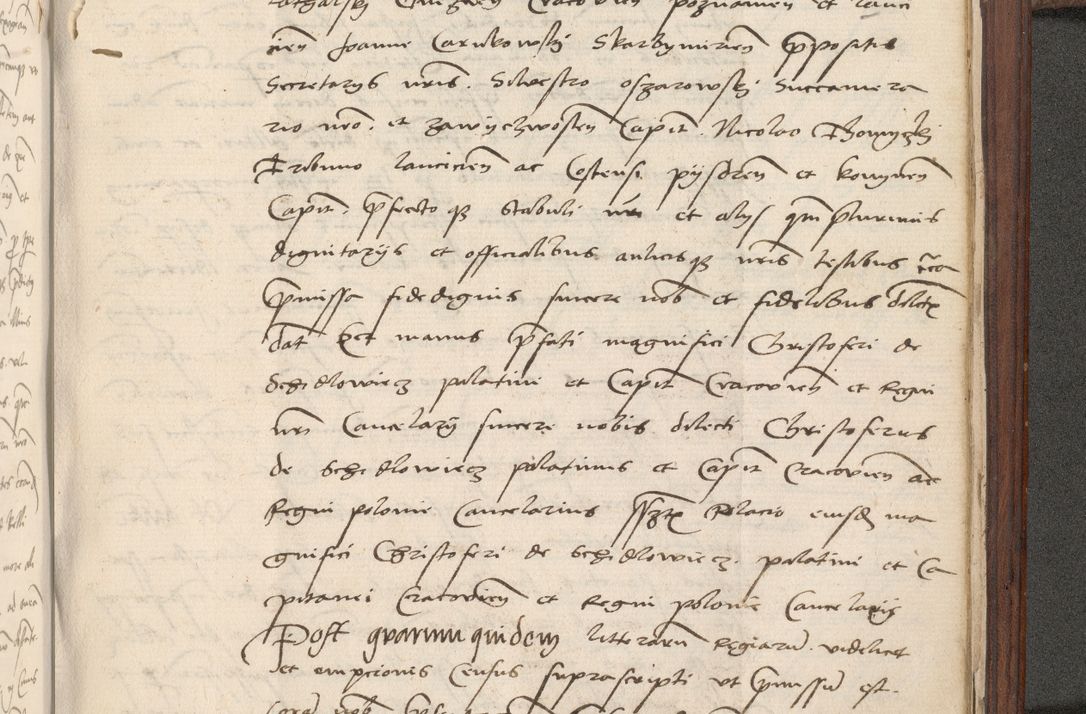 cien Joanne Carnkowskj Skarbymirien ppositis
Secretarijs nris. Silvestro oszarowskj Succamera
rio nro. et zawijchwosten Capit. Nicolao
Tribuno lancicien ac Costensi pijsdren et konynen
Capit. pfecto q3 Stabuli nri et alijs qm plurimis
dignitarijs et officialibus aulicis q3 nris testibus circa
pmissa fidedignis sincere nob et fidelibus dilect
dat per manus pfati magnifici Christoferi de
Schidlowiecz palatini et Capit Cracovien et Regni
nri Cancelarij sincere nobis dilecti Christoferus
de Schidlowiecz palatinus et Capit Cracovien ac
Regni polonie Cancelarius sszt Relacio eiusd ma
gnifici Christoferi de Schidlowiecz. palatini et Ca
pitanei Cracovien et Regni polonie Cancelarij
Post quarum quidem litterarum Regiarum videlicet
et empcionis Census suprascripti ut pmissu est.